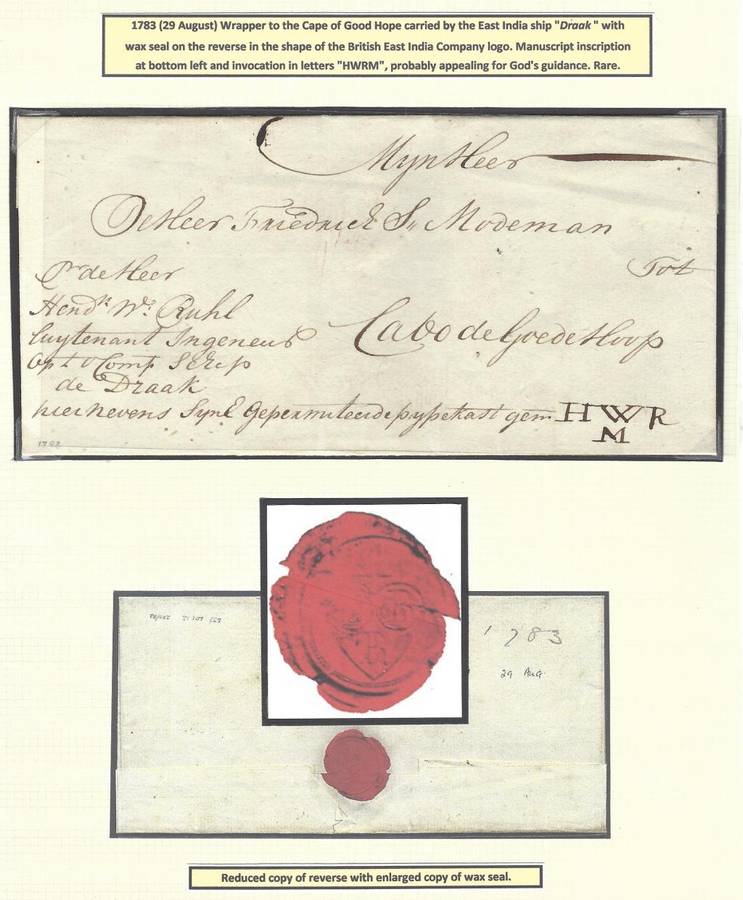 1783 (29 August) Wrapper to the Cape of Good Hope carried by the East India ship "Draak" with
wax seal on the reverse in the shape of the British East India Company logo. Manuscript inscription
at bottom left and invocation in letters "HWRM", probably appealing for God's guidance. Rare.
Myn Heer
De Heer Friedrick Modeman
Tot
Pr de Heer
Hendk Wm Ruhl
Cabo de Goede Hoop
luytenant Ingeneur
Comp Schip
de Draak
hier nevens Gepermiteerde pypekast gem H W R
M
1783
29 Aug
Reduced copy of reverse with enlarged copy of wax seal.